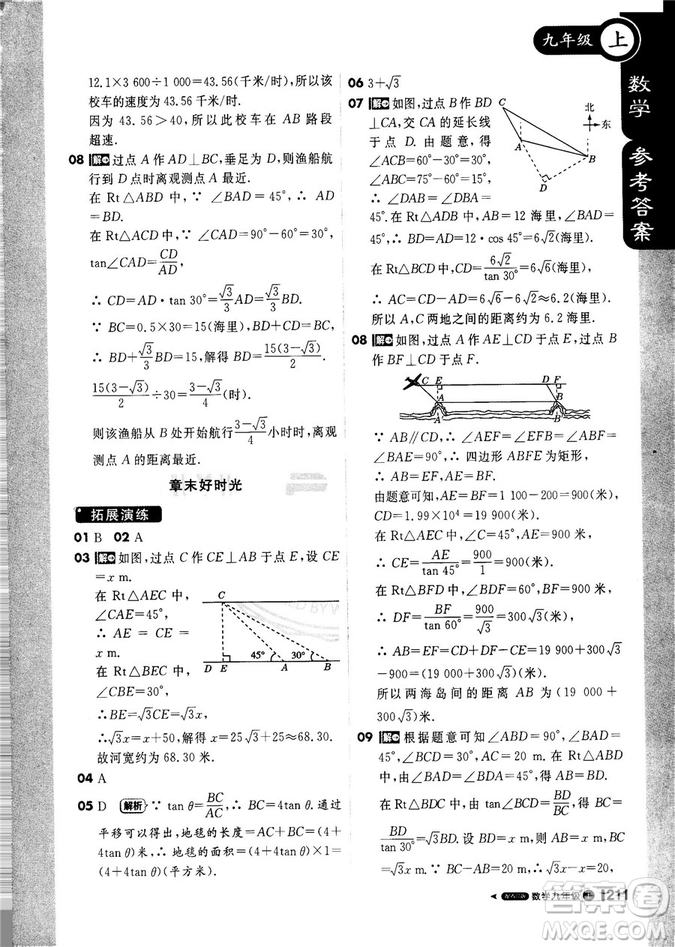 九年级 上
数学 参考答案
12.1×3 600÷1 000=43.56(千米/时),所以该
校车的速度为 43.56 千米/时.
因为 43.56>40,所以此校车在 AB 路段
超速.
08 解 过点 A 作 AD⊥BC,垂足为 D,则渔船航
行到 D 点时离观测点 A 最近.
在 Rt△ABD 中,∵∠BAD=45°,
∴AD=BD.
在 Rt△ACD 中,∵∠CAD=90°-60°=30°,
tan∠CAD=CD/AD,
∴CD=AD·tan 30°=√3/3 AD=√3/3 BD.
∵BC=0.5×30=15(海里),BC=BD+CD,
∴BD+√3/3 BD=15,解得 BD=15(3-√3)/2.
15(3-√3)/2÷30=(3-√3)/4(时).
则该渔船从 B 处开始航行(3-√3)/4小时时,离观
测点 A 的距离最近.
章末好时光
拓展演练
01 B 02 A
03 解 如图,过点 C 作 CE⊥AB 于点 E,设 CE=
x m.
在 Rt△AEC 中,
∠CAE=45°,
∴AE=CE=
x m.
在 Rt△BEC 中,
∠CBE=30°,
C
45° 30°
D E A B
∴BE=√3CE=√3x m.
∴√3x=x+50.解得 x=25√3+25≈68.30.
故河宽约为 68.30 m.
04 A
05 D 解析 ∵tan θ=BC/AC,∴BC=4tan θ.通过
平移可以得到,地毯的长度=AC+BC=(4+
4tan θ)米,∴地毯的面积=(4+4tan θ)×1=
(4+4tan θ)(平方米).
06 3+√3
07 解 如图,过点 B 作 BD
⊥CA,交 CA 的延长线
于点 D.由题意,得
∠ACB=60°-30°=30°,
∠ABC=75°-60°=15°,
∴∠DAB=∠DBA=
C 北 东 A B D
45°.在 Rt△ADB 中,AB=12 海里,∠BAD=
45°,∴BD=AD=12·cos 45°=6√2(海里).
在 Rt△BCD 中,CD=6√2/tan 30°=6√6(海里),
∴AC=CD-AD=6√6-6√2≈6.2(海里).
所以 A,C 两地之间的距离约为 6.2 海里.
08 解 如图,过点 A 作 AE⊥CD 于点 E,过点 B
作 BF⊥CD 于点 F.
C E D F
A B
∵AB∥CD,∴∠AEF=∠EFB=∠ABF=
90°.∴四边形 ABFE 为矩形.
∴AB=EF,AE=BF.
由题意可知,AE=BF=1 100-200=900(米),
CD=1.99×10⁴=19 900(米).
由题意可得,在 Rt△AEC 中,∠C=45°,
∴CE=AE/tan 45°=900/1=900(米).
在 Rt△BFD 中,∠BDF=60°,
∴DF=BF/tan 60°=900/√3=300√3(米).
∴AB=EF=CD+DF-CE=19 900+300√3
-900=19 000+300√3(米).
所以两海岛间的距离 AB 为(19 000+
300√3)米.
09 解 根据题意可知∠ABD=90°,∠BAD=45°,
∠BCD=30°,AC=60 m.在 Rt△ABD 中,
∵∠BAD=∠BDA=45°,∴AB=BD.
在 Rt△BDC 中,∵tan∠BCD=BD/BC,∴BC=
BD/tan 30°=√3BD.设 BD=x m,∴AB=x m,BC
=√3x m.∵BC-AB=AC,∴√3x-x=60,
数学九年级 上 121